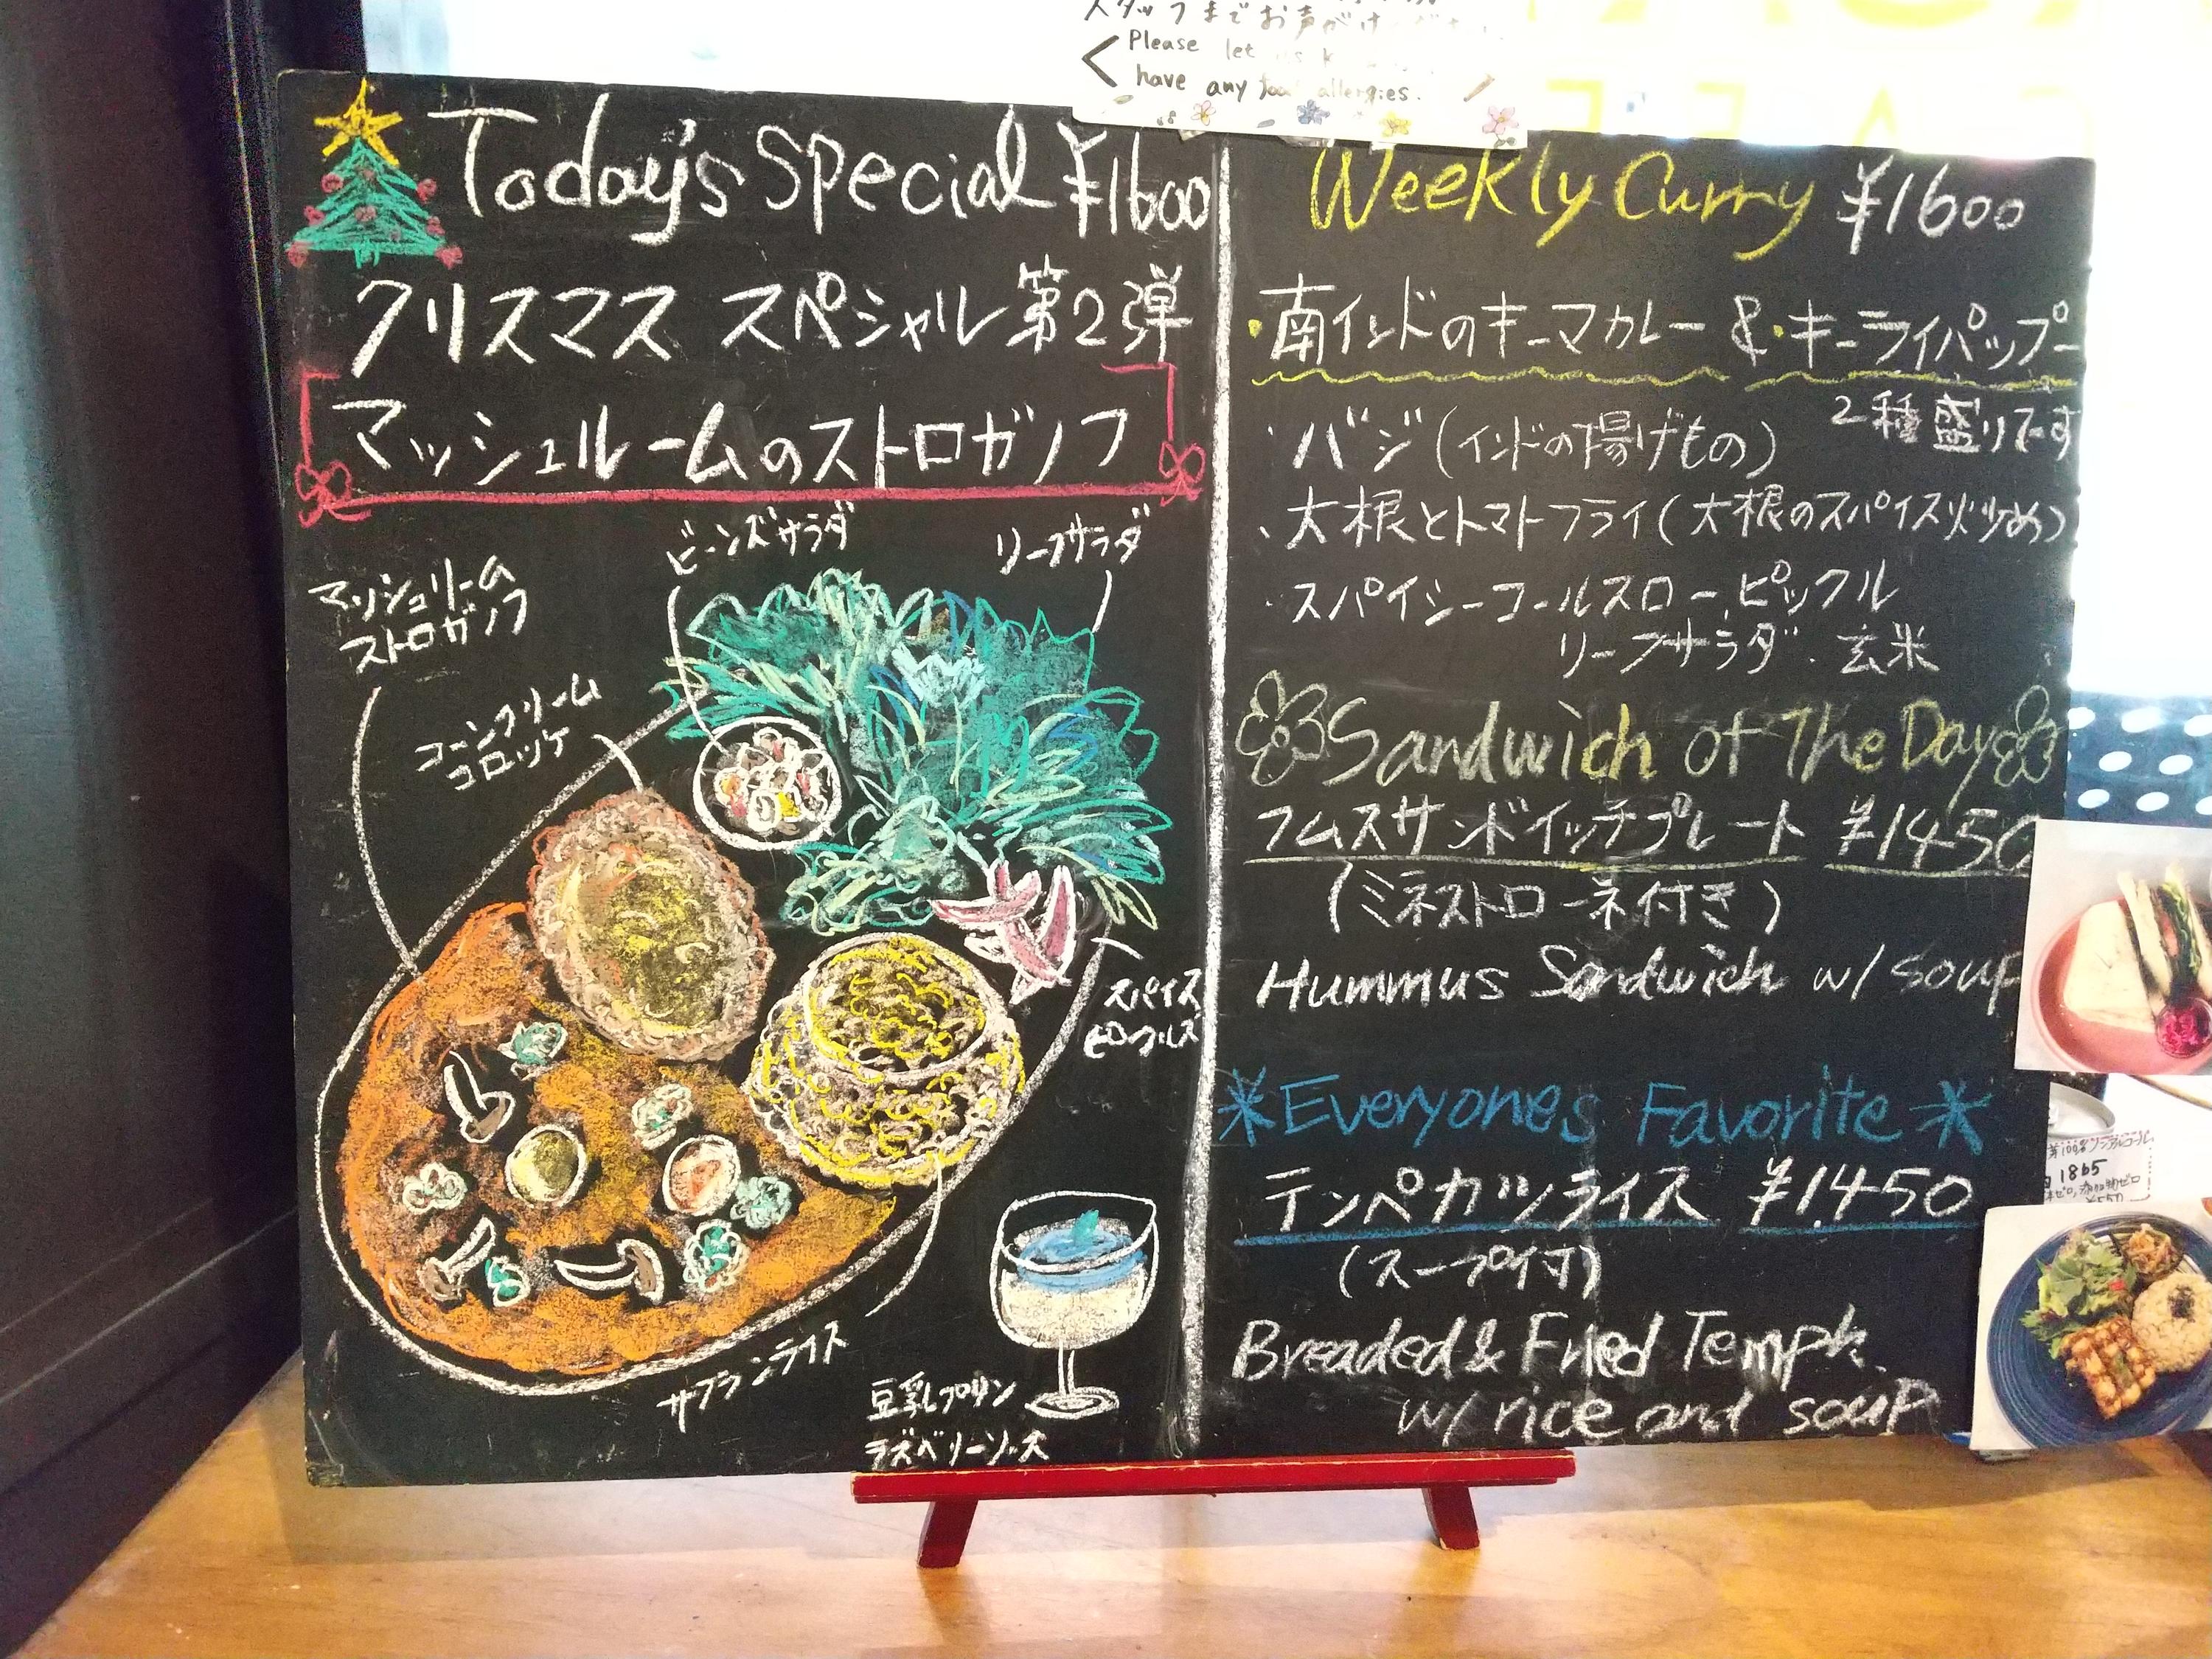 スタッフまでお声がけ
Please let us k
have any food allergies.
Today's Special ¥1600
クリスマス スペシャル 第2弾
マッシュルームのストロガノフ
ビーンズサラダ
リーフサラダ
マッシュルーム
ストロガノフ
コーンクリーム
コロッケ
スパイス
ピックルス
サフランライス
豆乳プリン
ラズベリーソース
Weekly Curry ¥1600
・南インドのキーマカレー & ・キーライパップー
2種盛りです
・バジ(インドの揚げもの)
・大根とトマトフライ(大根のスパイス炒め)
・スパイシーコールスロー、ピックル
リーフサラダ・玄米
Sandwich of The Day
フムスサンドイッチプレート ¥1450
(ミネストローネ付き)
Hummus Sandwich w/ soup
Everyones Favorite
テンペカツライス ¥1450
(スープ付)
Breaded & Fried Tempeh
w/ rice and soup
1865